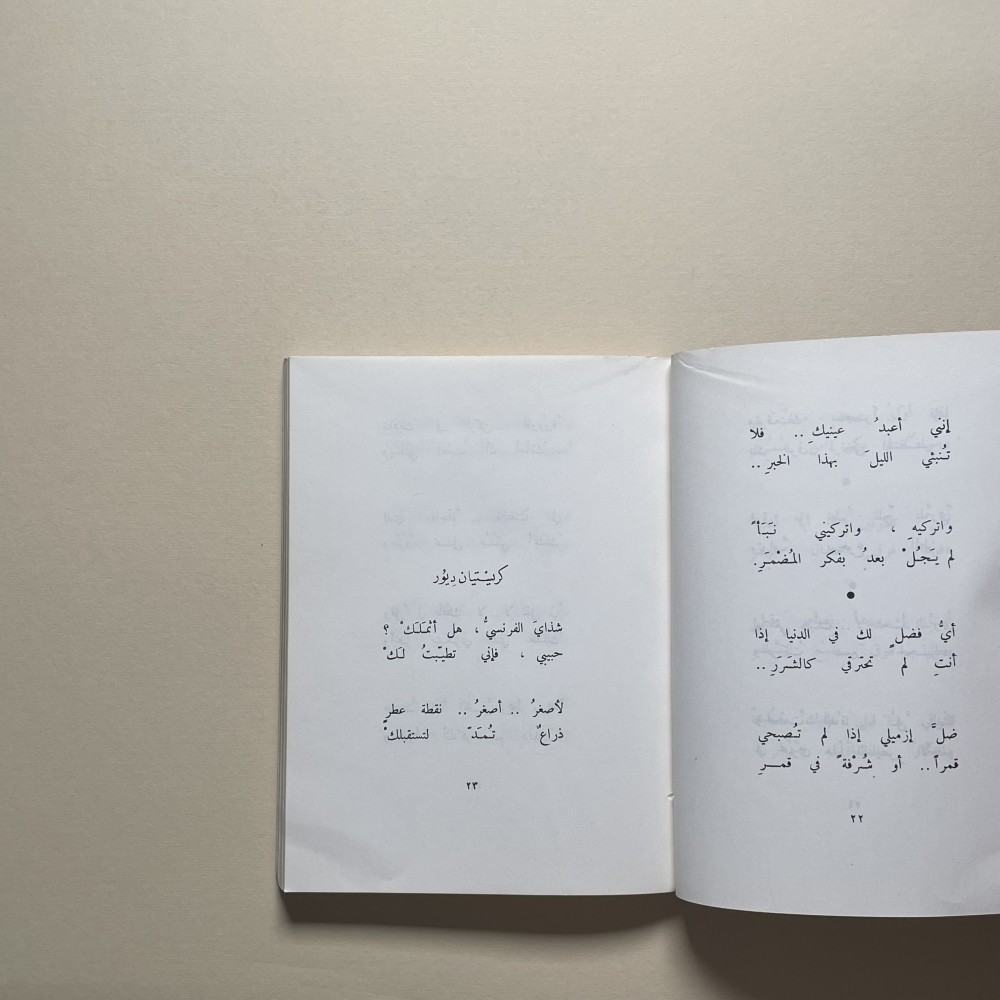 إنني أعبدُ عينيكِ .. فلا
تُنبئي الليلَ بهذا الخبرِ ..
واتركيهِ ، واتركيني نَبَأً
لم يَجُلْ بعدُ بفكر المُضْمَرِ.
أيُّ فضلٍ لك في الدنيا إذا
أنتِ لم تحترقي كالشَرَرِ ..
ضلَّ إزميلي إذا لم تُصبحي
قمراً .. أو شُرْفةً في قمرِ
٢٢
كريسْتيان ديُور
شذايَ الفرنسيُّ ، هل أثملَكْ ؟
حبيبي ، فإني تطيّبتُ لَكْ
لأصغرُ .. أصغرُ .. نقطة عطرٍ
ذراعٌ تُمَدّ لتستقبلكْ
٢٣